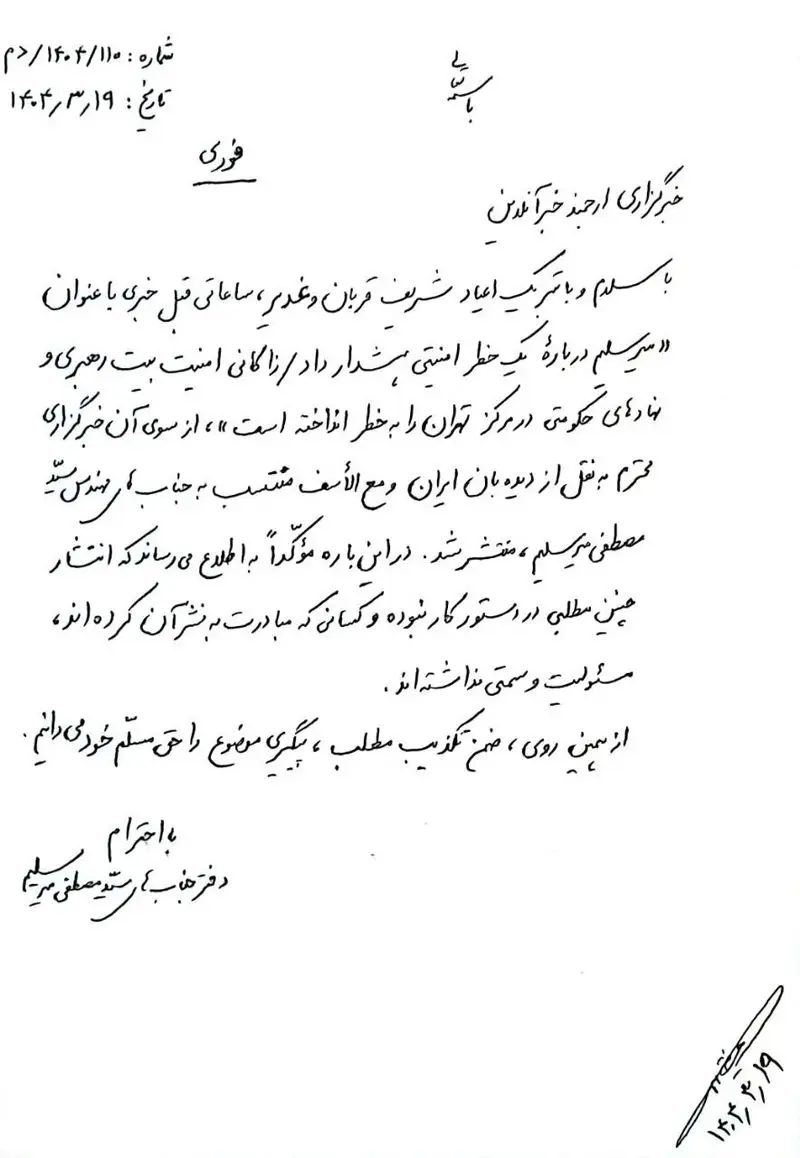 باسمه تعالی
شماره: ۱۴۰۴/۱۱۰/دم
تاریخ: ۱۴۰۴٫۳٫۱۹
فوری
خبرگزاری ارجمند خبرآنلاین
با سلام و با تبریک اعیاد شریف قربان و غدیر، ساعاتی قبل خبری با عنوان
«میرسلیم دربارهٔ یک خطر امنیتی هشدار داد/ زاکانی امنیت بیت رهبری و
نهادهای حکومتی در مرکز تهران را به خطر انداخته است»، از سوی آن خبرگزاری
محترم به نقل از دیده‌بان ایران و مع الأسف منتسب به جناب آقای مهندس سیّد
مصطفی میرسلیم، منتشر شد. در این باره مؤکّداً به اطلاع می‌رساند که انتشار
چنین مطلبی در دستور کار نبوده و کسانی که مبادرت به نشر آن کرده‌اند،
مسئولیت و سمتی نداشته‌اند.
از همین روی، ضمن تکذیب مطلب، پیگیری موضوع را حق مسلّم خود می‌دانیم.
با احترام
دفتر جناب آقای سیّد مصطفی میرسلیم
۱۴۰۴٫۳٫۱۹